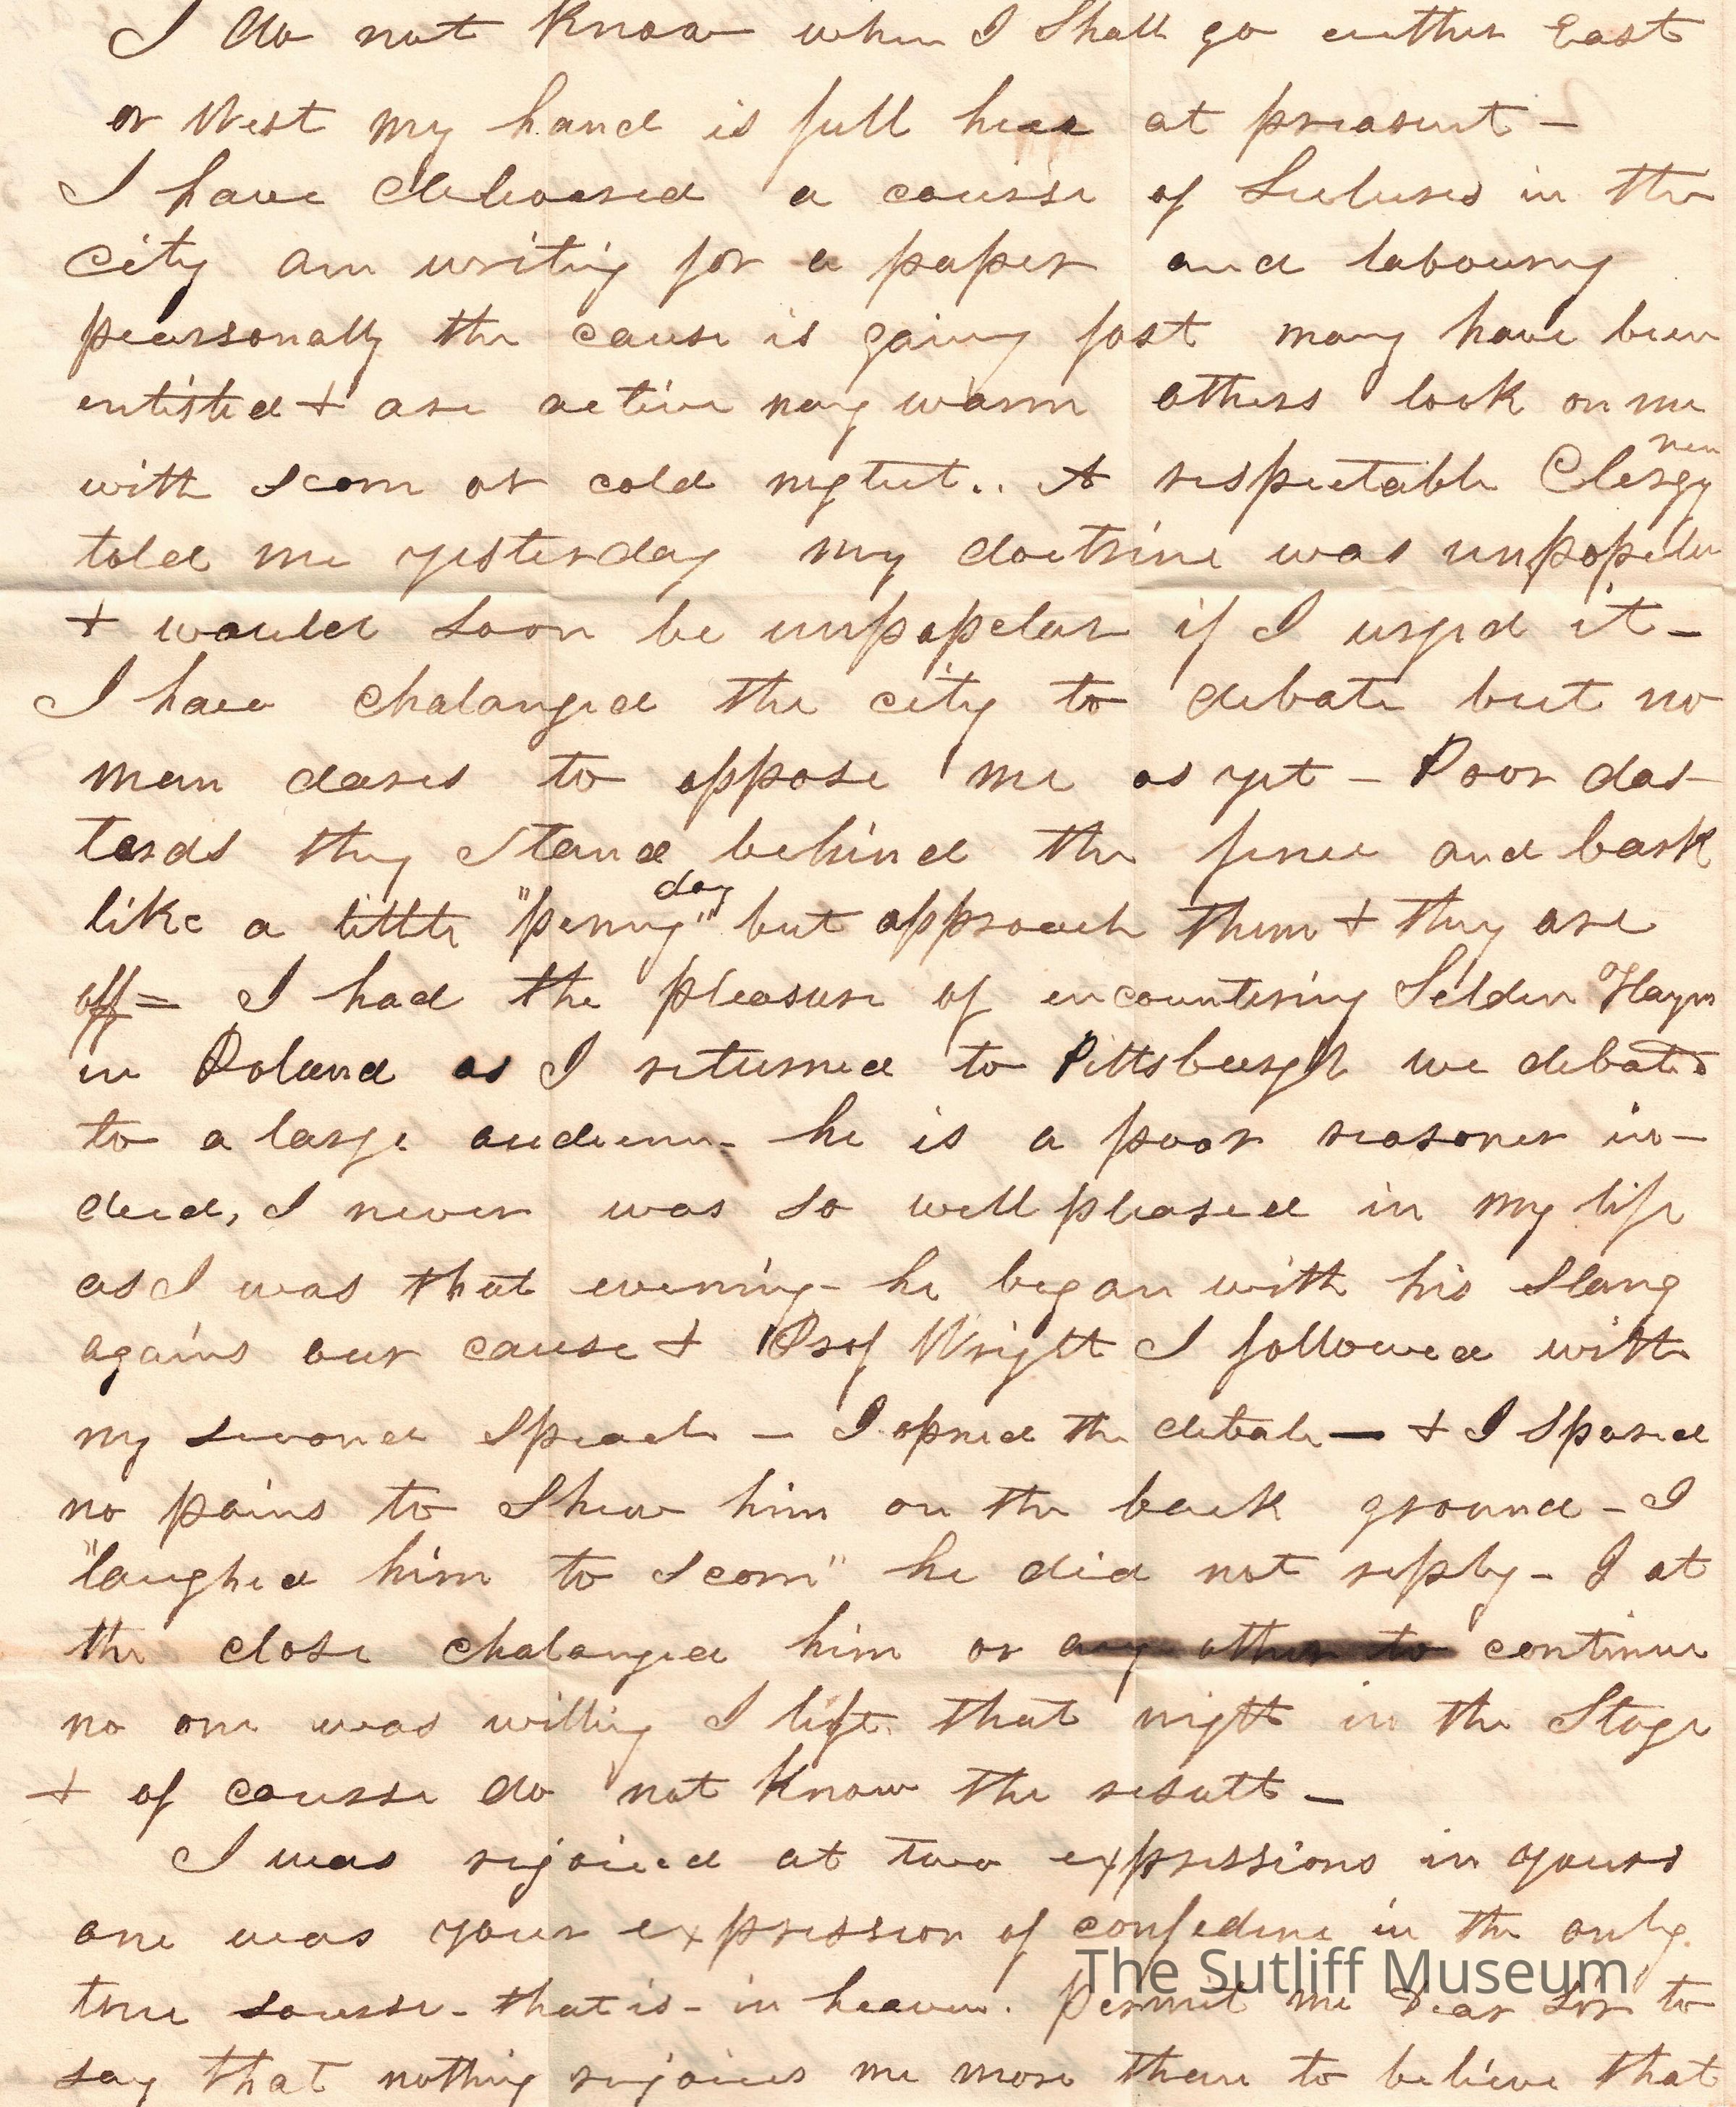 I do not know when I shall go either East
or West my hand is full here at preasent –
I have delivered a course of Lectures in the
city am writing for a paper and labouring
pearsonally the cause is gaing fast many have been
entisted + are active nay warm others look on me
with scorn or cold neglect.. A respectable Clergymen
told me yesterday my doctrine was unpopelar
+ would soon be unpopelar if I urged it –
I have chalanged the city to debate but no
man dares to oppose me as yet – Poor das-
tards they stand behind the fence and bark
like a little "penny dog" but approach them + they are
off = I had the pleasure of encountering Selden Hayns
in Poland as I returned to Pittsburgh we debated
to a large audience – he is a poor reasoner in-
deed, I never was so well pleased in my life
as I was that evening – he began with his slang
agains our cause + Prof Wright I followed with
my second speach – I opned the debate – + I spared
no pains to shew him on the back ground – I
"laughed him to scorn" he did not reply – I at
the close chalanged him or any other to continue
no one was willing I left that night in the Stage
+ of course do not know the result –
I was rejoiced at two expressions in yours
one was your expression of confedence in the only
true sourse – that is – in heaven. Permit me Dear Sir to
say that nothing rejoices me more than to believe that
The Sutliff Museum